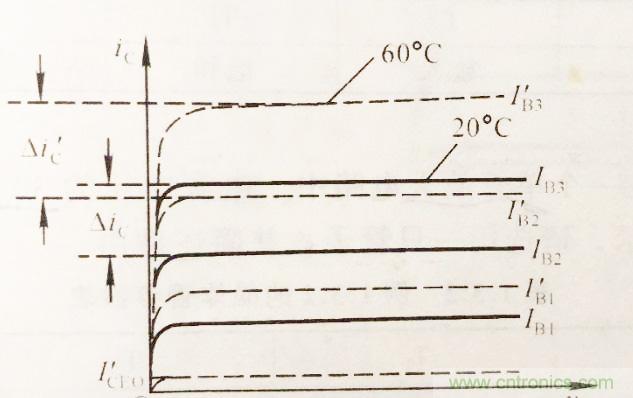 i_C
60°C
I'_B3
Δi'_C
20°C
I_B3
I'_B2
Δi_C
I_B2
I'_B1
I_B1
I'_CEO
www.cntronics.com